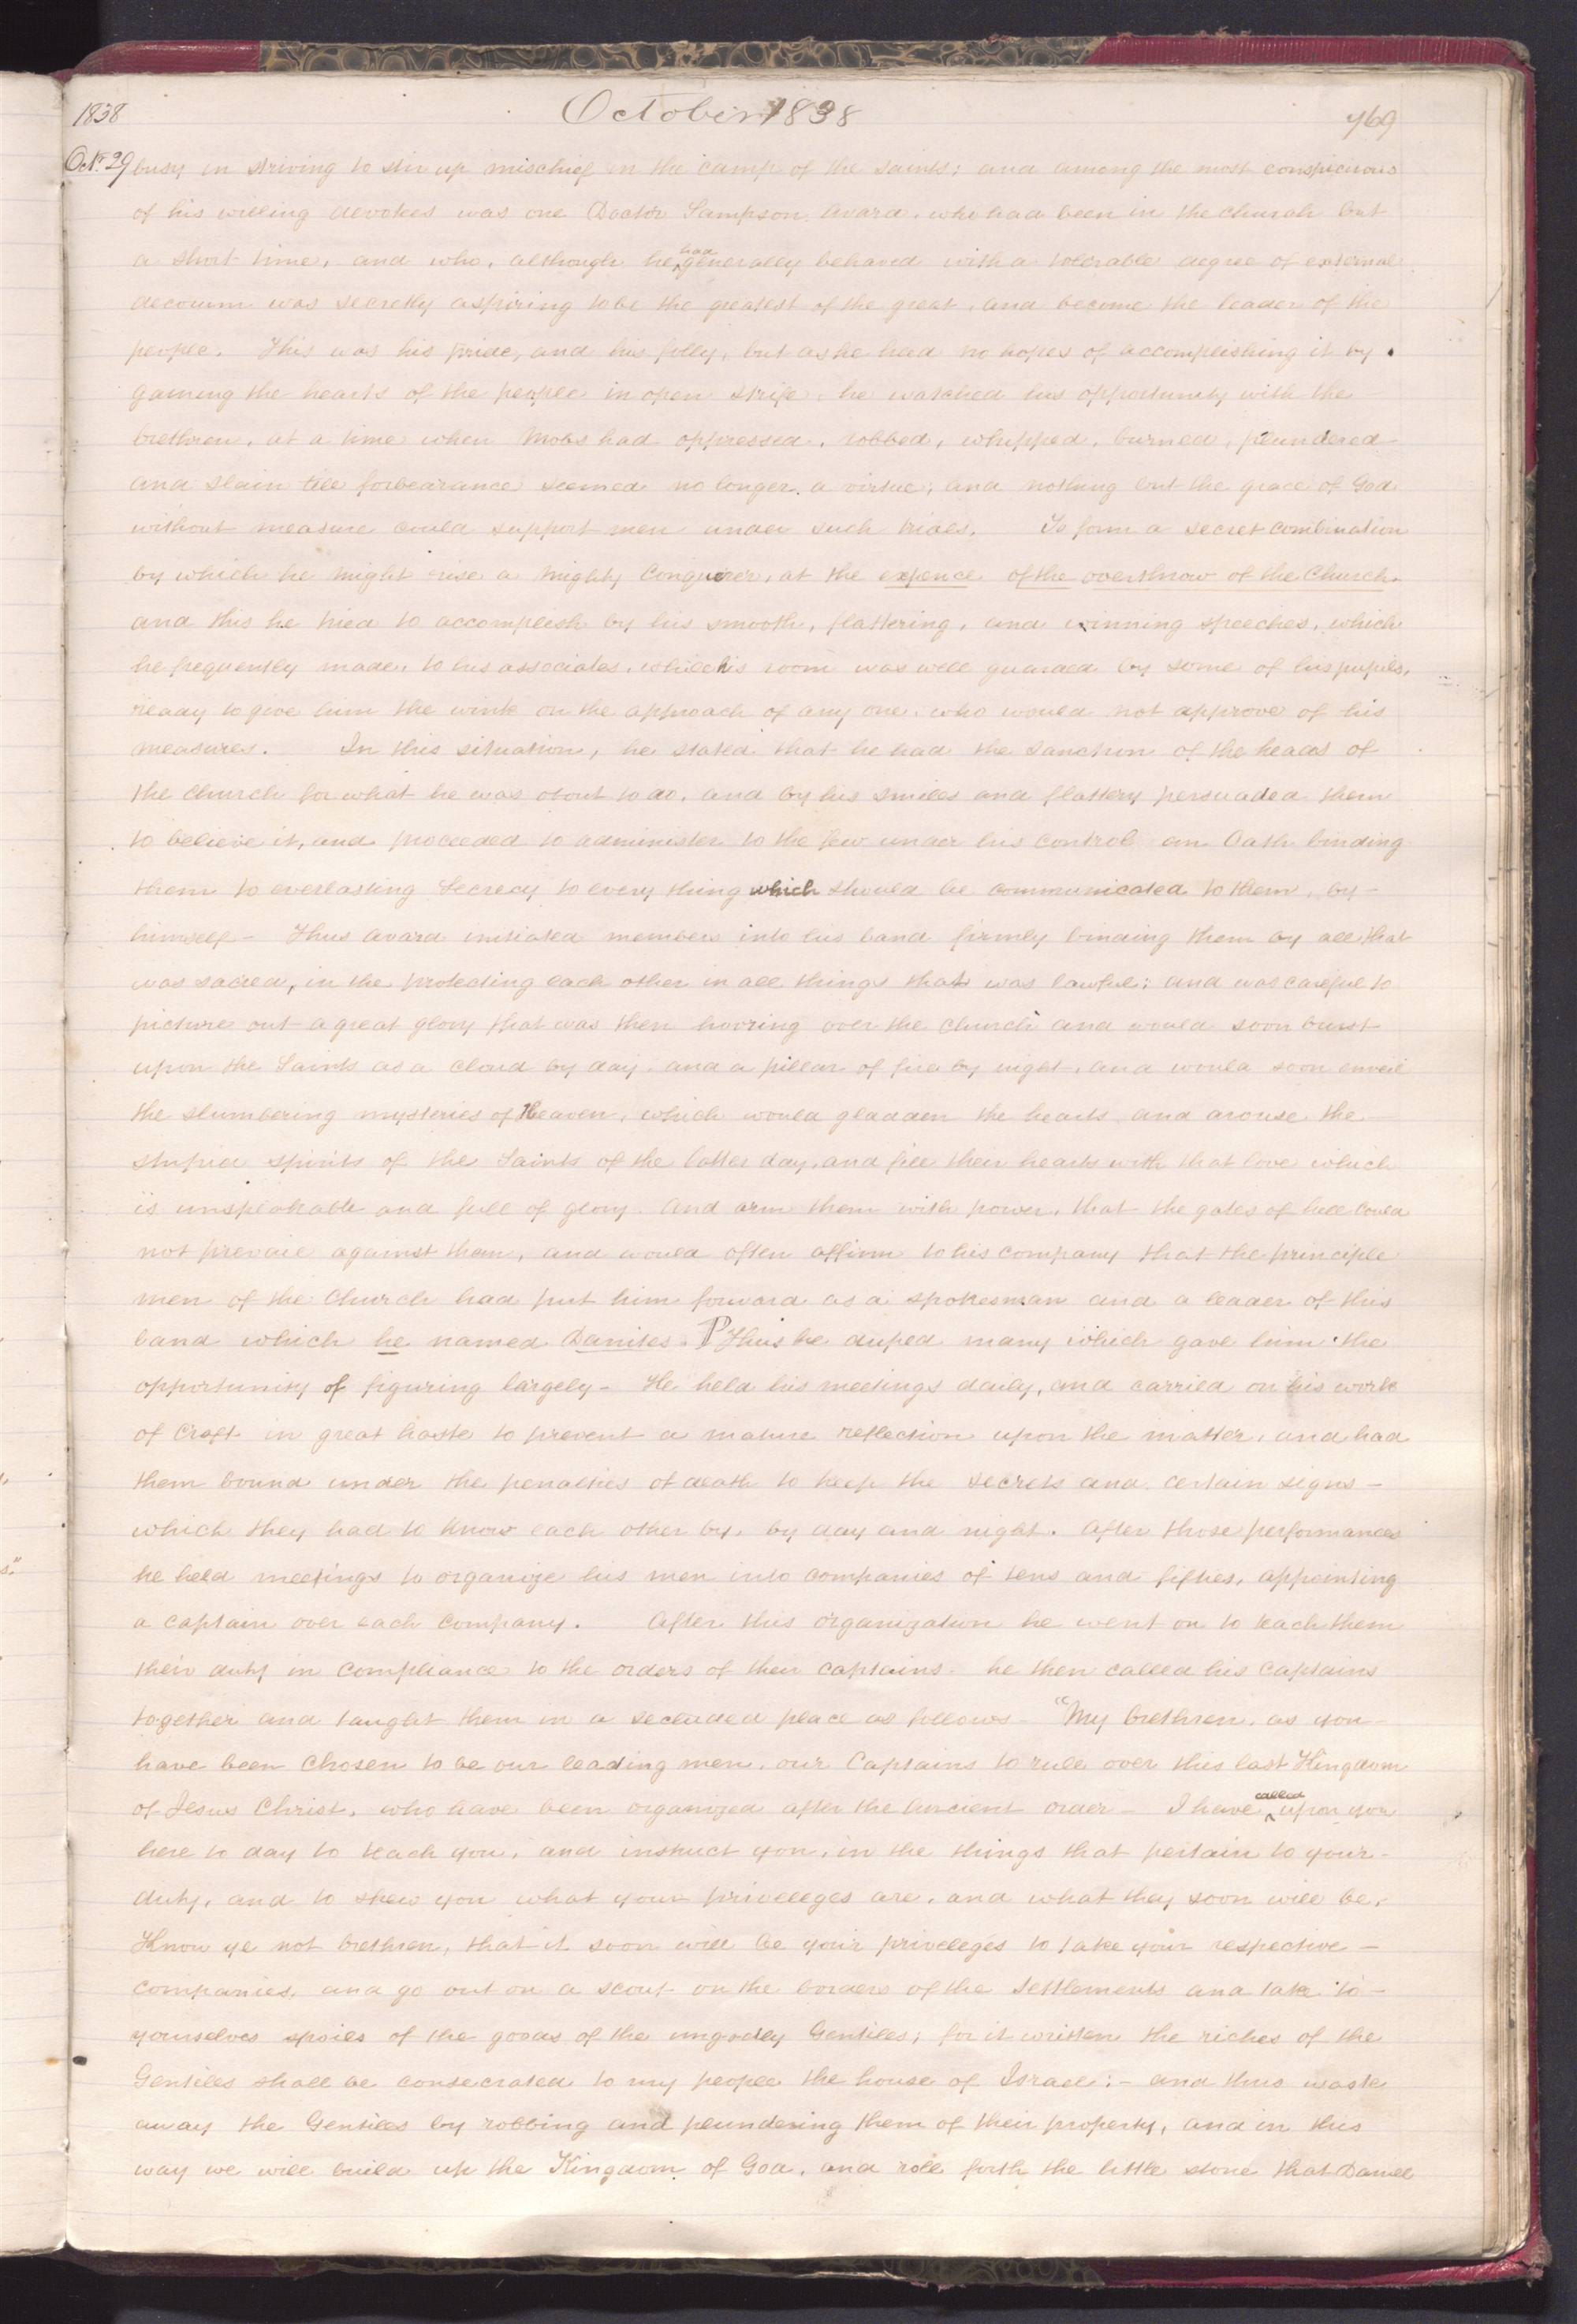 1838 October 1838 769
Oct. 29 busy in striving to stir up mischief in the camp of the saints; and among the most conspicuous
of his willing devotees was one Doctor Sampson Avard, who had been in the church but
a short time, and who, although he had generally behaved with a tolerable degree of external
decorum was secretly aspiring to be the greatest of the great, and become the leader of the
people. This was his pride, and his folly, but as he had no hopes of accomplishing it by
gaining the hearts of the people in open strife, he watched his opportunity with the
brethren, at a time when mobs had oppressed, robbed, whipped, burned, plundered
and slain till forbearance seemed no longer a virtue, and nothing but the grace of God
without measure could support men under such trials. To form a secret combination
by which he might rise a mighty conqueror, at the expence of the overthrow of the Church.
and this he tried to accomplish by his smooth, flattering, and winning speeches, which
he frequently made, to his associates, while his room was well guarded by some of his pupils,
ready to give him the wink on the approach of any one, who would not approve of his
measures. In this situation, he stated that he had the sanction of the heads of
the church for what he was about to do, and by his smiles and flattery persuaded them
to believe it, and proceeded to administer to the few under his control an Oath binding
them to everlasting secrecy to every thing which should be communicated to them, by
himself— Thus Avard initiated members into his band firmly binding them by all that
was sacred, in the protecting each other in all things that was lawful; and was careful to
picture out a great glory that was then hovring over the Church and would soon burst
upon the Saints as a cloud by day, and a pillar of fire by night, and would soon unveil
the slumbering mysteries of Heaven, which would gladden the hearts and arouse the
stupid spirits of the Saints of the latter day, and fill their hearts with that love which
is unspeakable and full of glory. and arm them with power, that the gates of hell could
not prevail against them, and would often affirm to his company that the principle
men of the Church had put him forward as a spokesman and a leader of this
band which he named Danites. ¶ Thus he duped many which gave him the
opportunity of figuring largely— He held his meetings daily, and carried on his work
of craft in great haste to prevent a mature reflection upon the matter, and had
them bound under the penalties of death to keep the secrets and certain signs—
which they had to know each other by, by day and night. After those performances
he held meetings to organize his men into companies of tens and fifties, appointing
a captain over each company. After this organization he went on to teach them
their duty in compliance to the orders of their captains. he then called his captains
together and taught them in a secluded place as follows— "My brethren, as you
have been chosen to be our leading men, our Captains to rule over this last Kingdom
of Jesus Christ, who have been organized after the ancient order— I have called upon you
here to day to teach you, and instruct you, in the things that pertain to your
duty, and to shew you what your privileges are, and what they soon will be.
Know ye not brethren, that it soon will be your privileges to take your respective—
companies, and go out on a scout on the borders of the Settlements and take to—
yourselves spoils of the goods of the ungodly Gentiles; for it written the riches of the
Gentiles shall be consecrated to my people the house of Israel:— and thus waste
away the Gentiles by robbing and plundering them of their property, and in this
way we will build up the Kingdom of God, and roll forth the little stone that Daniel